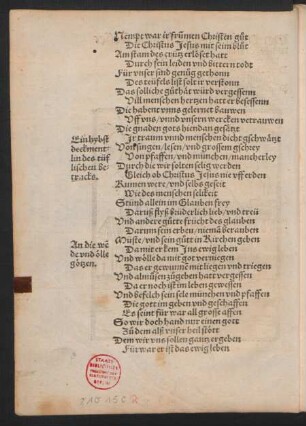 Nempt war ir frümen Christen güt
Die Christus Jesus mit seim blüt
Am stam des creütz erlöset hatt
Durch sein leiden vnd bittern todt
Für vnser sind genüg gethonn
Des teüfels list solt ir verstonn
Das solliche güthät würd vergessenn
Vill menschen hertzen hatt er besessenn
Die habent vnns gelernet bauwen
Vff vns / vnnd vnsern wercken vertrauwen
Die gnaden gots hiendan gesätzt
Ir traum vnnd menschen dicht gschwätzt
Von singen / lesen / vnd grossem gschrey
Von pfaffen / vnd münchen / mancherley
Durch die wir solten selig werden
Gleich ob Christus Jesus nie vff erden
Kumen were / vnd selbs geseit
Wie des menschen selikeit
Stünd allein im Glauben frey
Daruß flyß brüderlich lieb / vnd treü
Vnd andere gütte frücht des glauben
Darum sein erben / niemä berauben
Müste / vnd sein güt in Kirchen geben
Da mit er kem Ins ewig leben
Vnd wölle da mit got vernuegen
Das er gewunnē mit liegen vnd triegen
Vnd almüsen zügeben hatt vergessen
Da er noch ist im leben gewessen
Vnd befelch sein sele münchen vnd pfaffen
Die gott im geben vnd geschaffen
Es seint für war all grosse affen
So wir doch hand nur einen gott
Zü dem alß vnser heil stott
Dem wir vns sollen gantz ergeben
Für war er ist das ewig leben
Ein hybst
deckment
lin des tüf
lischen be-
An die wē
de vnd ölle
götzen.